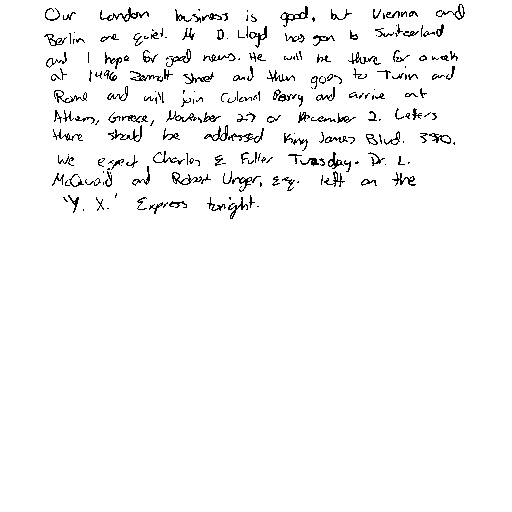 Our London business is good, but Vienna and
Berlin are quiet. Mr D. Lloyd has gon to Switzerland
and I hope for good news. He will be there for a week
at 1496 Zermott Street and then goes to Turin and
Rome and will join Colonel Parry and arrive at
Athens, Greece, November 27 or December 2. Letters
there should be addressed King James Blvd. 3580.
We expect Charles E. Fuller Tuesday. Dr. L.
McQuaid and Robert Unger, Esq. left on the
"Y. X." Express tonight.